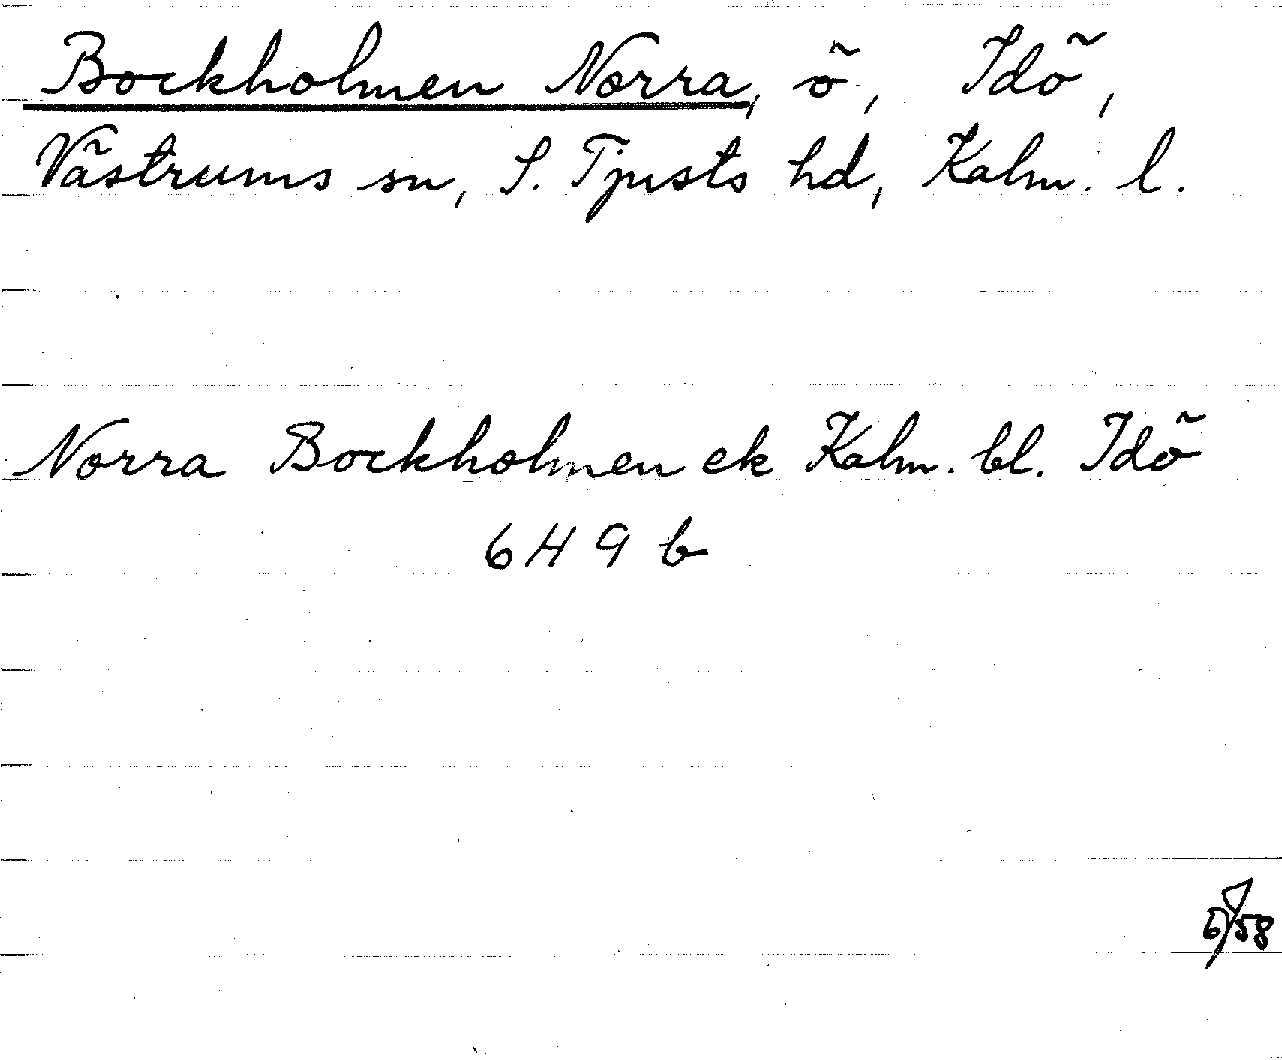 Bockholmen Norra, ö, Idö,
Västrums sn, S. Tjusts hd, Kalm. l.
Norra Bockholmen ek Kalm. bl. Idö
6H 9 b